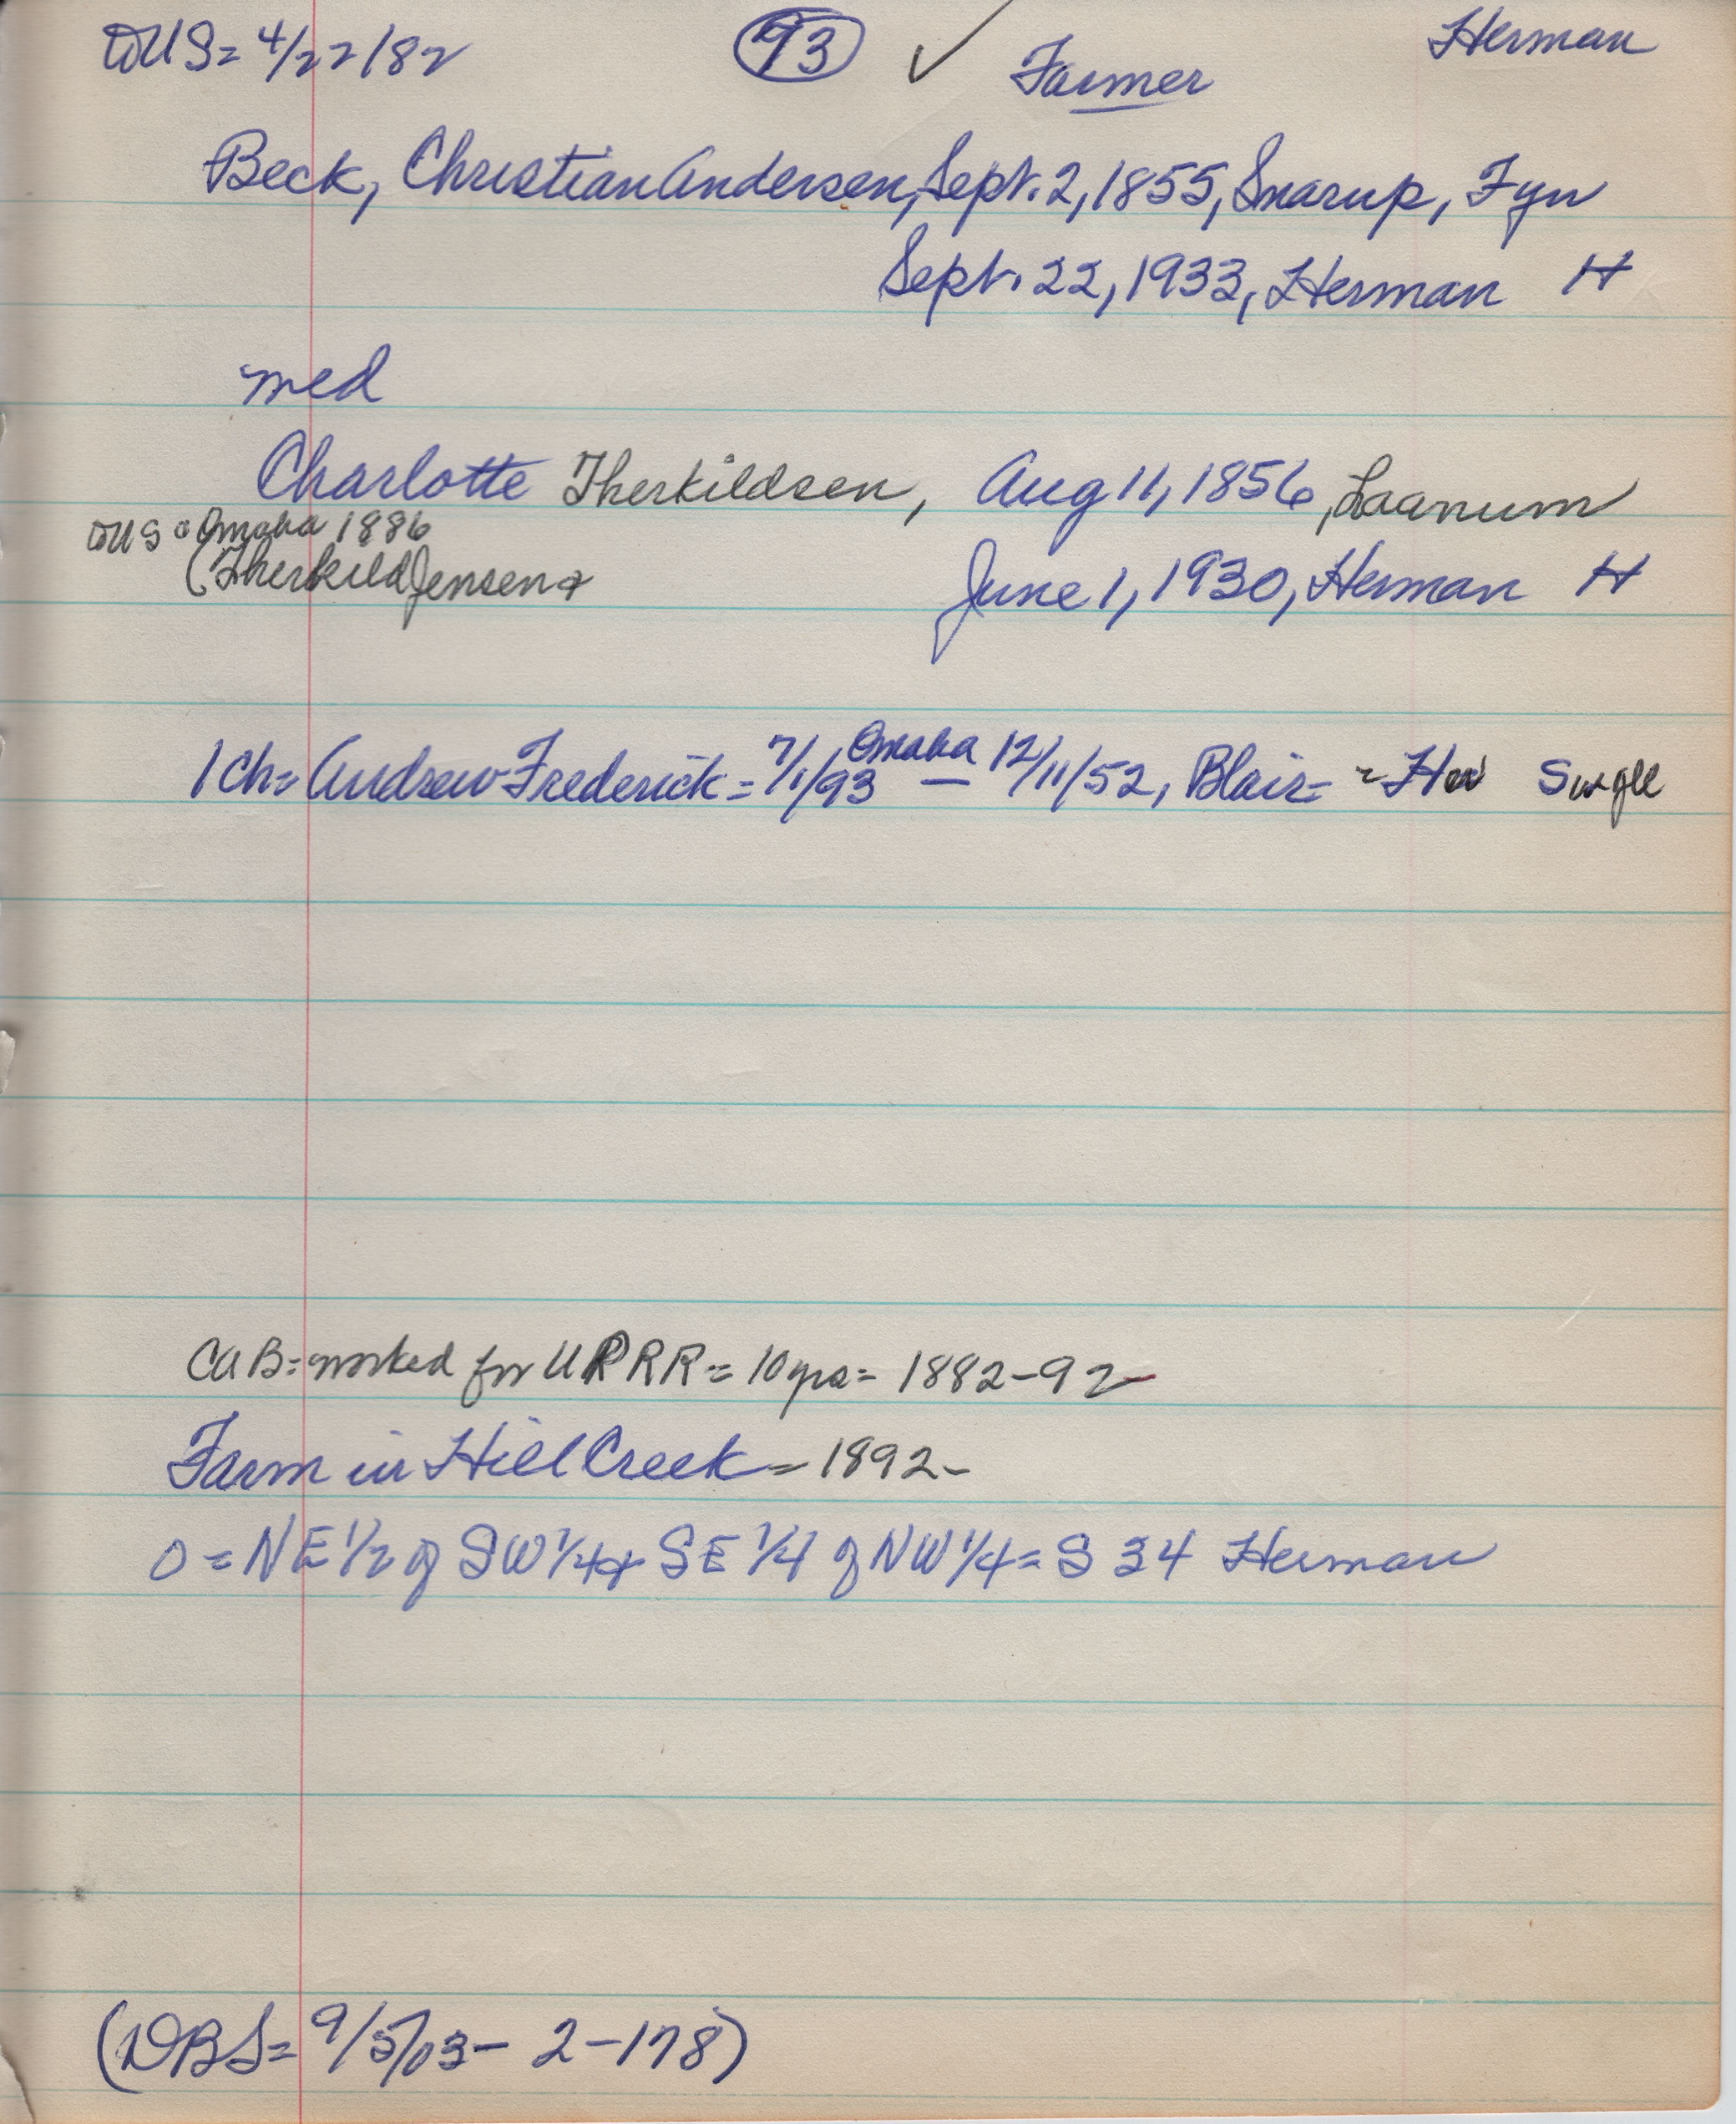 TUS= 4/22/82 93 ✓ Farmer Herman
Beck, Christian Andersen, Sept. 2, 1855, Snarup, Fyn
Sept. 22, 1933, Herman H
med
Charlotte Therkildsen, Aug 11, 1856, Laanum
TUS = Omaha 1886
(Therkild Jensen+ June 1, 1930, Herman H
1 Ch= Andrew Frederick= 7/1/93 Omaha — 12/11/52, Blair=
CAB= worked for UPRR= 10 yrs= 1882-92-
Farm in Hill Creek= 1892-
O= NE 1/2 of SW 1/4+ SE 1/4 of NW 1/4= S 34 Herman
(DBS= 9/5/03- 2-178)